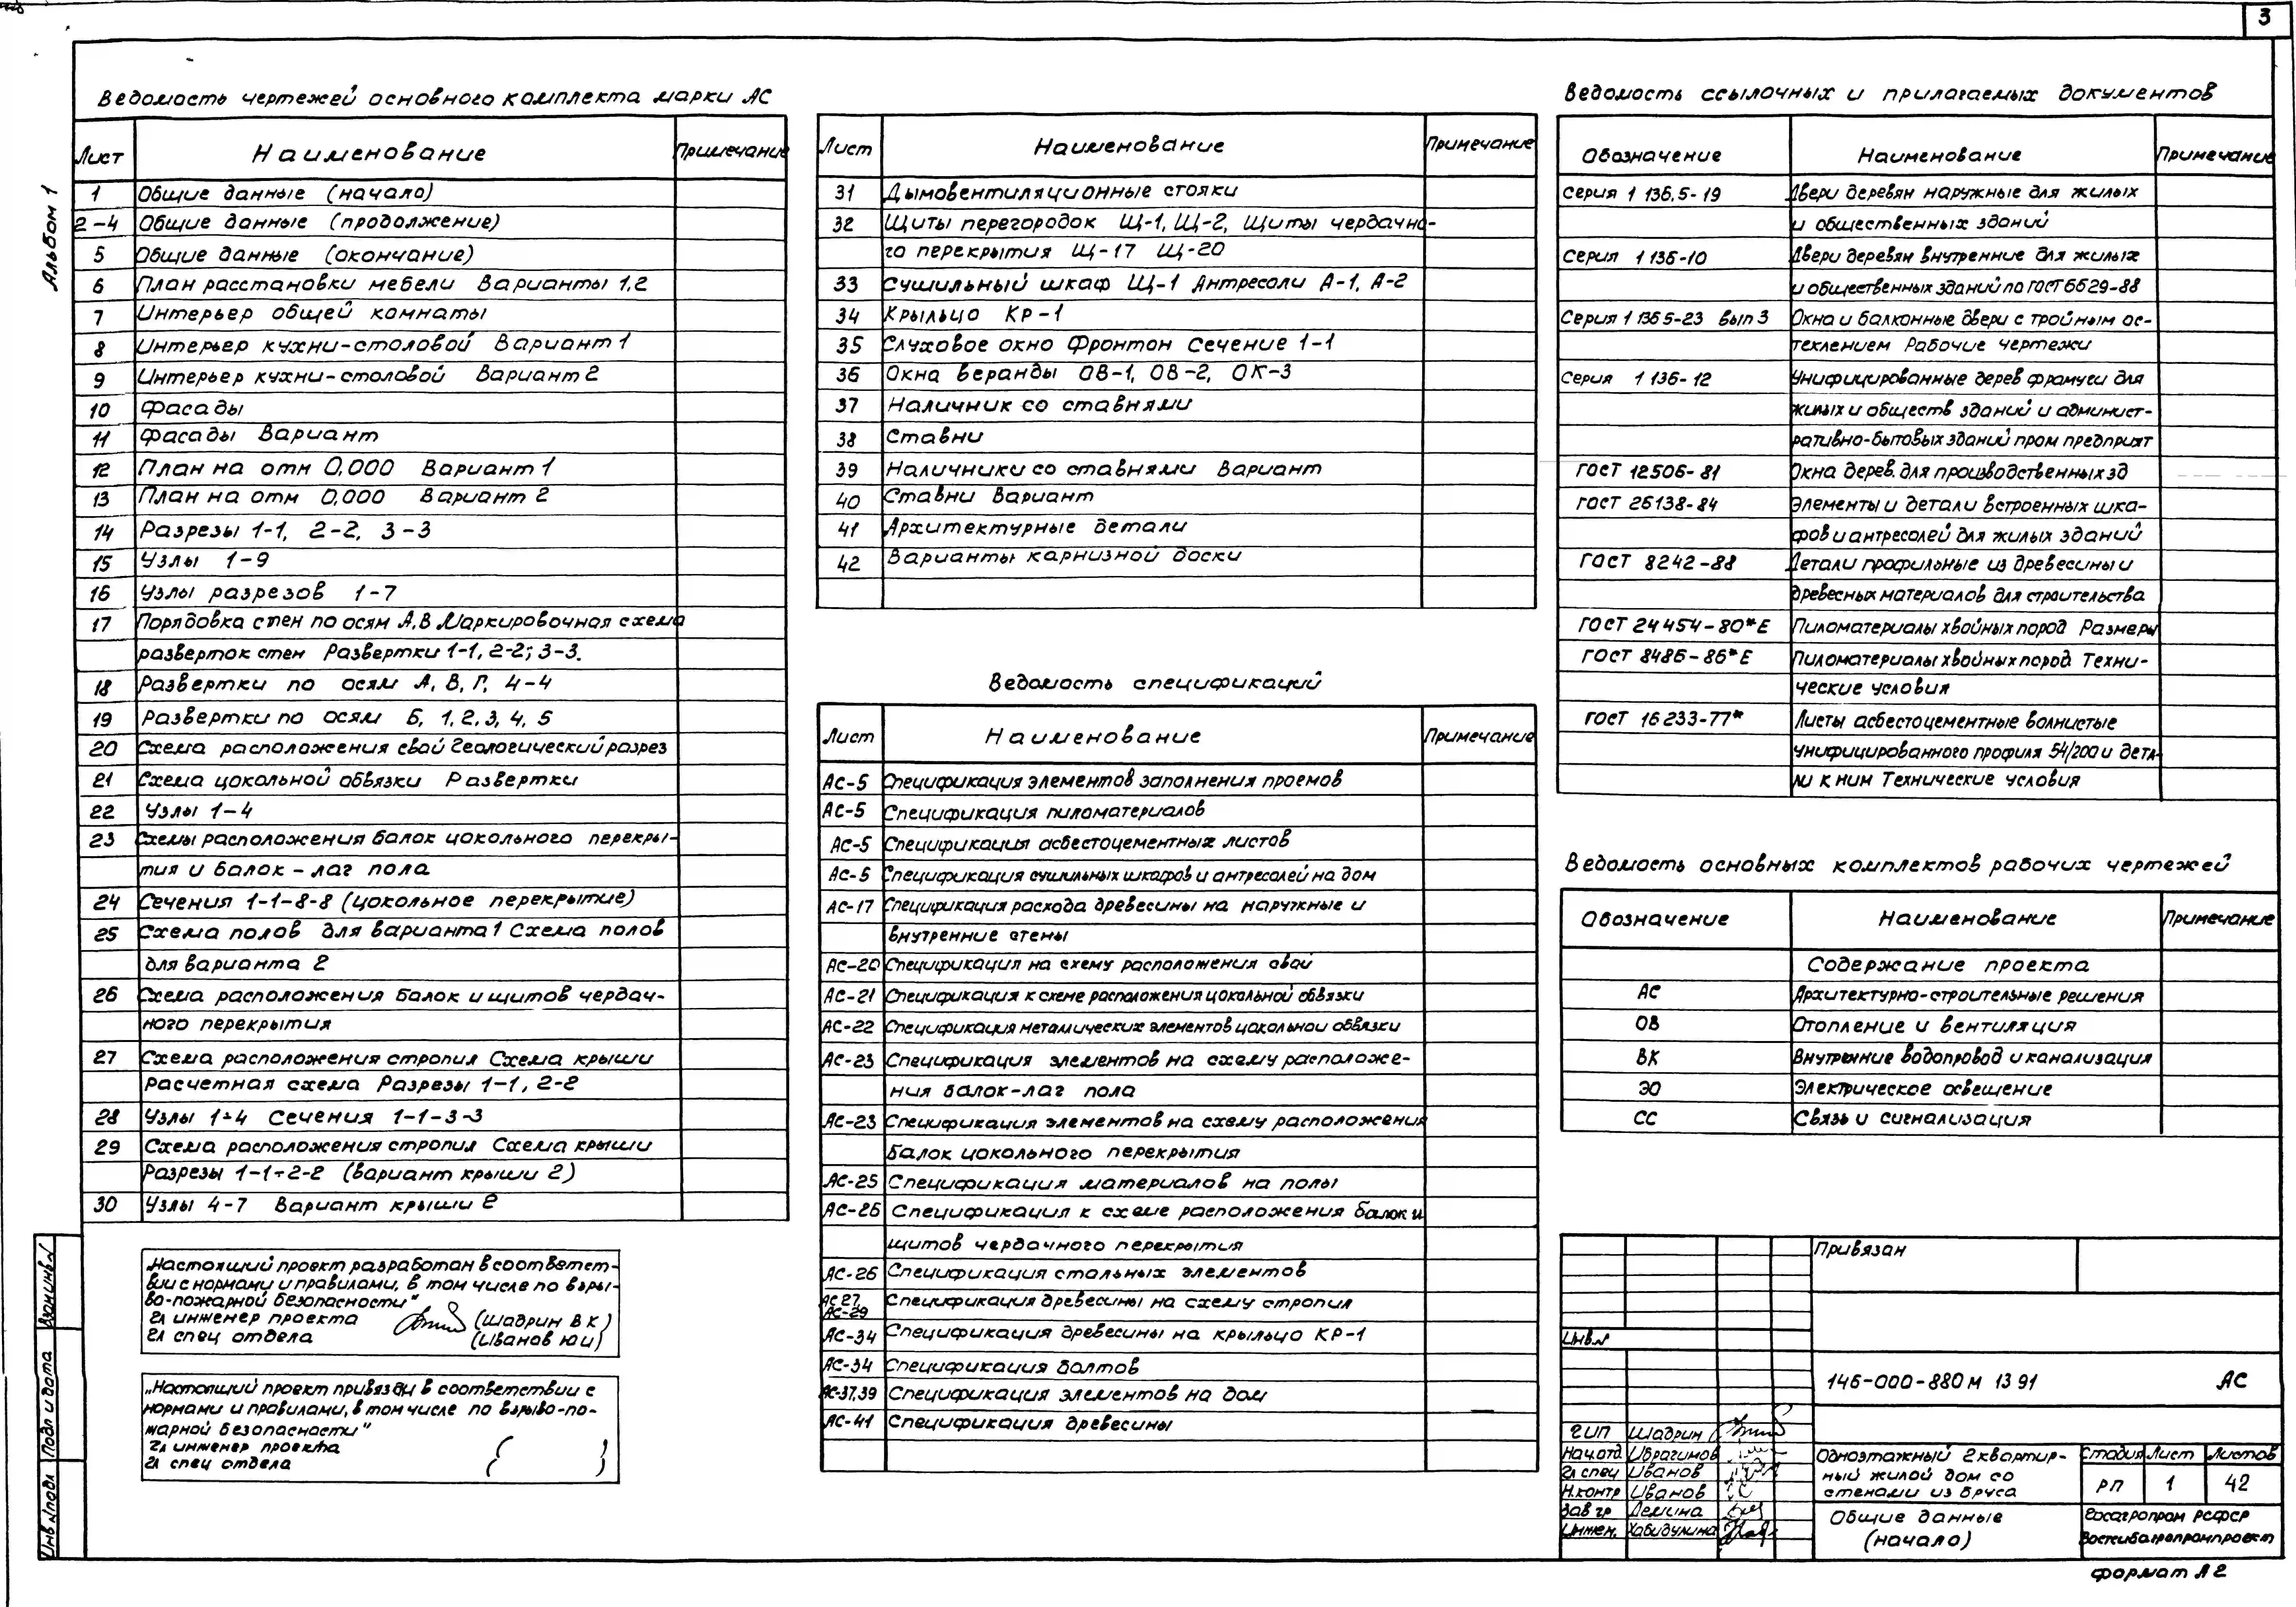 3
Альбом 1
Ведомость чертежей основного комплекта марки АС
Лист Наименование Примечание
1 Общие данные (начало)
2-4 Общие данные (продолжение)
5 Общие данные (окончание)
6 План расстановки мебели Варианты 1,2
7 Интерьер общей комнаты
8 Интерьер кухни-столовой Вариант 1
9 Интерьер кухни-столовой Вариант 2
10 Фасады
11 Фасады Вариант
12 План на отм 0,000 Вариант 1
13 План на отм 0,000 Вариант 2
14 Разрезы 1-1, 2-2, 3-3
15 Узлы 1-9
16 Узлы разрезов 1-7
17 Порядовка стен по осям А,В Маркировочная схема
разверток стен Развертки 1-1, 2-2; 3-3.
18 Развертки по осям А, В, Г, 4-4
19 Развертки по осям Б, 1, 2, 3, 4, 5
20 Схема расположения свай Геологический разрез
21 Схема цокольной обвязки Развертки
22 Узлы 1-4
23 Схемы расположения балок цокольного перекры-
тия и балок - лаг пола
24 Сечения 1-1-8-8 (цокольное перекрытие)
25 Схема полов для варианта 1 Схема полов
для варианта 2
26 Схема расположения балок и щитов чердач-
ного перекрытия
27 Схема расположения стропил Схема крыши
расчетная схема Разрезы 1-1, 2-2
28 Узлы 1÷4 Сечения 1-1-3-3
29 Схема расположения стропил Схема крыши
Разрезы 1-1÷2-2 (вариант крыши 2)
30 Узлы 4-7 Вариант крыши 2
„Настоящий проект разработан в соответст-
вии с нормами и правилами, в том числе по взры-
во-пожарной безопасности"
Гл инженер проекта (Шадрин В К)
Гл спец отдела (Иванов Ю И)
„Настоящий проект привязан в соответствии с
нормами и правилами, в том числе по взрыво-по-
жарной безопасности"
Гл инженер проекта
Гл спец отдела ( )
Лист Наименование Примечание
31 Дымовентиляционные стояки
32 Щиты перегородок Щ-1, Щ-2, Щиты чердачно-
го перекрытия Щ-17 Щ-20
33 Сушильный шкаф Щ-1 Антресоли А-1, А-2
34 Крыльцо КР-1
35 Слуховое окно Фронтон Сечение 1-1
36 Окна веранды ОВ-1, ОВ-2, ОК-3
37 Наличник со ставнями
38 Ставни
39 Наличники со ставнями Вариант
40 Ставни Вариант
41 Архитектурные детали
42 Варианты карнизной доски
Ведомость спецификаций
Лист Наименование Примечание
АС-5 Спецификация элементов заполнения проемов
АС-5 Спецификация пиломатериалов
АС-5 Спецификация асбестоцементных листов
АС-5 Спецификация сушильных шкафов и антресолей на дом
АС-17 Спецификация расхода древесины на наружные и
внутренние стены
АС-20 Спецификация на схему расположения свай
АС-21 Спецификация к схеме расположения цокольной обвязки
АС-22 Спецификация металлических элементов цокольной обвязки
АС-23 Спецификация элементов на схему расположе-
ния балок-лаг пола
АС-23 Спецификация элементов на схему расположения
балок цокольного перекрытия
АС-25 Спецификация материалов на полы
АС-26 Спецификация к схеме расположения балок и
щитов чердачного перекрытия
АС-26 Спецификация стальных элементов
АС 27, АС-29 Спецификация древесины на схему стропил
АС-34 Спецификация древесины на крыльцо КР-1
АС-34 Спецификация болтов
АС-37,39 Спецификация элементов на дом
АС-41 Спецификация древесины
Ведомость ссылочных и прилагаемых документов
Обозначение Наименование Примечание
Серия 1 136.5-19 Двери деревян наружные для жилых
и общественных зданий
Серия 1 136-10 Двери деревян внутренние для жилых
и общественных зданий по ГОСТ 6629-88
Серия 1 136 5-23 вып 3 Окна и балконные двери с тройным ос-
теклением Рабочие чертежи
Серия 1 136-12 Унифицированные дерев фрамуги для
жилых и обществ зданий и админист-
ративно-бытовых зданий пром предприят
ГОСТ 12506-81 Окна дерев. для производственных зд
ГОСТ 26138-84 Элементы и детали встроенных шка-
фов и антресолей для жилых зданий
ГОСТ 8242-88 Детали профильные из древесины и
древесных материалов для строительства
ГОСТ 24454-80*Е Пиломатериалы хвойных пород Размеры
ГОСТ 8486-86*Е Пиломатериалы хвойных пород Техни-
ческие условия
ГОСТ 16233-77* Листы асбестоцементные волнистые
унифицированного профиля 54/200 и дета-
ли к ним Технические условия
Ведомость основных комплектов рабочих чертежей
Обозначение Наименование Примечание
Содержание проекта
АС Архитектурно-строительные решения
ОВ Отопление и вентиляция
ВК Внутренние водопровод и канализация
ЭО Электрическое освещение
СС Связь и сигнализация
Привязан
Инв.№
146-000-880м 13 91 АС
ГИП Шадрин
Нач.отд Ибрагимов
Гл спец Иванов
Н.контр Иванов
Зав гр Демина
Инжен. Хабидулина
Одноэтажный 2 квартир-
ный жилой дом со
стенами из бруса
Стадия Лист Листов
РП 1 42
Общие данные
(начало)
Госагропром РСФСР
Востсибагропромпроект
Формат А2
Взам инв №
Подп и дата
Инв № подл